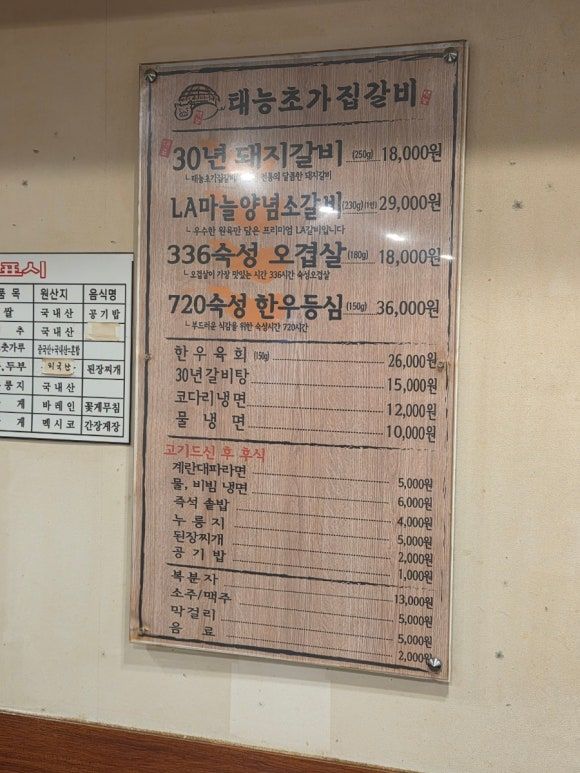 태능초가집갈비
30년 돼지갈비 (250g) 18,000원
LA마늘양념소갈비 (230g)(1인) 29,000원
ㄴ우수한 원육만 담은 프리미엄 LA갈비입니다
336숙성 오겹살 (180g) 18,000원
ㄴ오겹살이 가장 맛있는 시간 336시간 숙성오겹살
720숙성 한우등심 (150g) 36,000원
ㄴ부드러운 식감을 위한 숙성시간 720시간
한우육회 (150g) 26,000원
30년갈비탕 15,000원
코다리냉면 12,000원
물냉면 10,000원
고기드신 후 후식
계란대파라면 5,000원
물, 비빔 냉면 6,000원
즉석 솥밥 4,000원
누룽지 5,000원
된장찌개 2,000원
공기밥 1,000원
복분자 13,000원
소주/맥주 5,000원
막걸리 5,000원
음료 2,000원
표시
품목 원산지 음식명
쌀 국내산 공기밥
추 국내산
춧가루 중국산+국내산=혼합
두부 외국산 된장찌개
룽지 국내산
게 바레인 꽃게무침
게 멕시코 간장게장